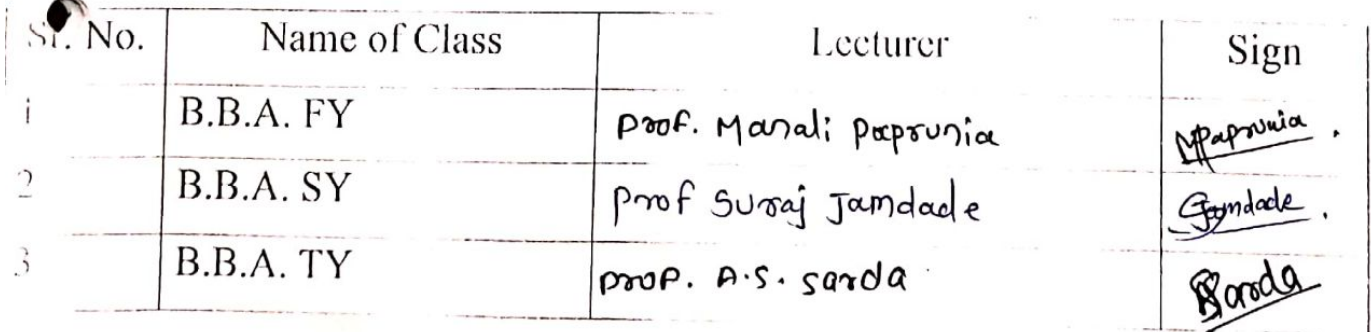 Sr. No. Name of Class Lecturer Sign
1 B.B.A. FY Prof. Manali Paprunia MPaprunia.
2 B.B.A. SY Prof Suraj Jamdade SJamdade.
3 B.B.A. TY Prof. A.S. Sarda ASarda